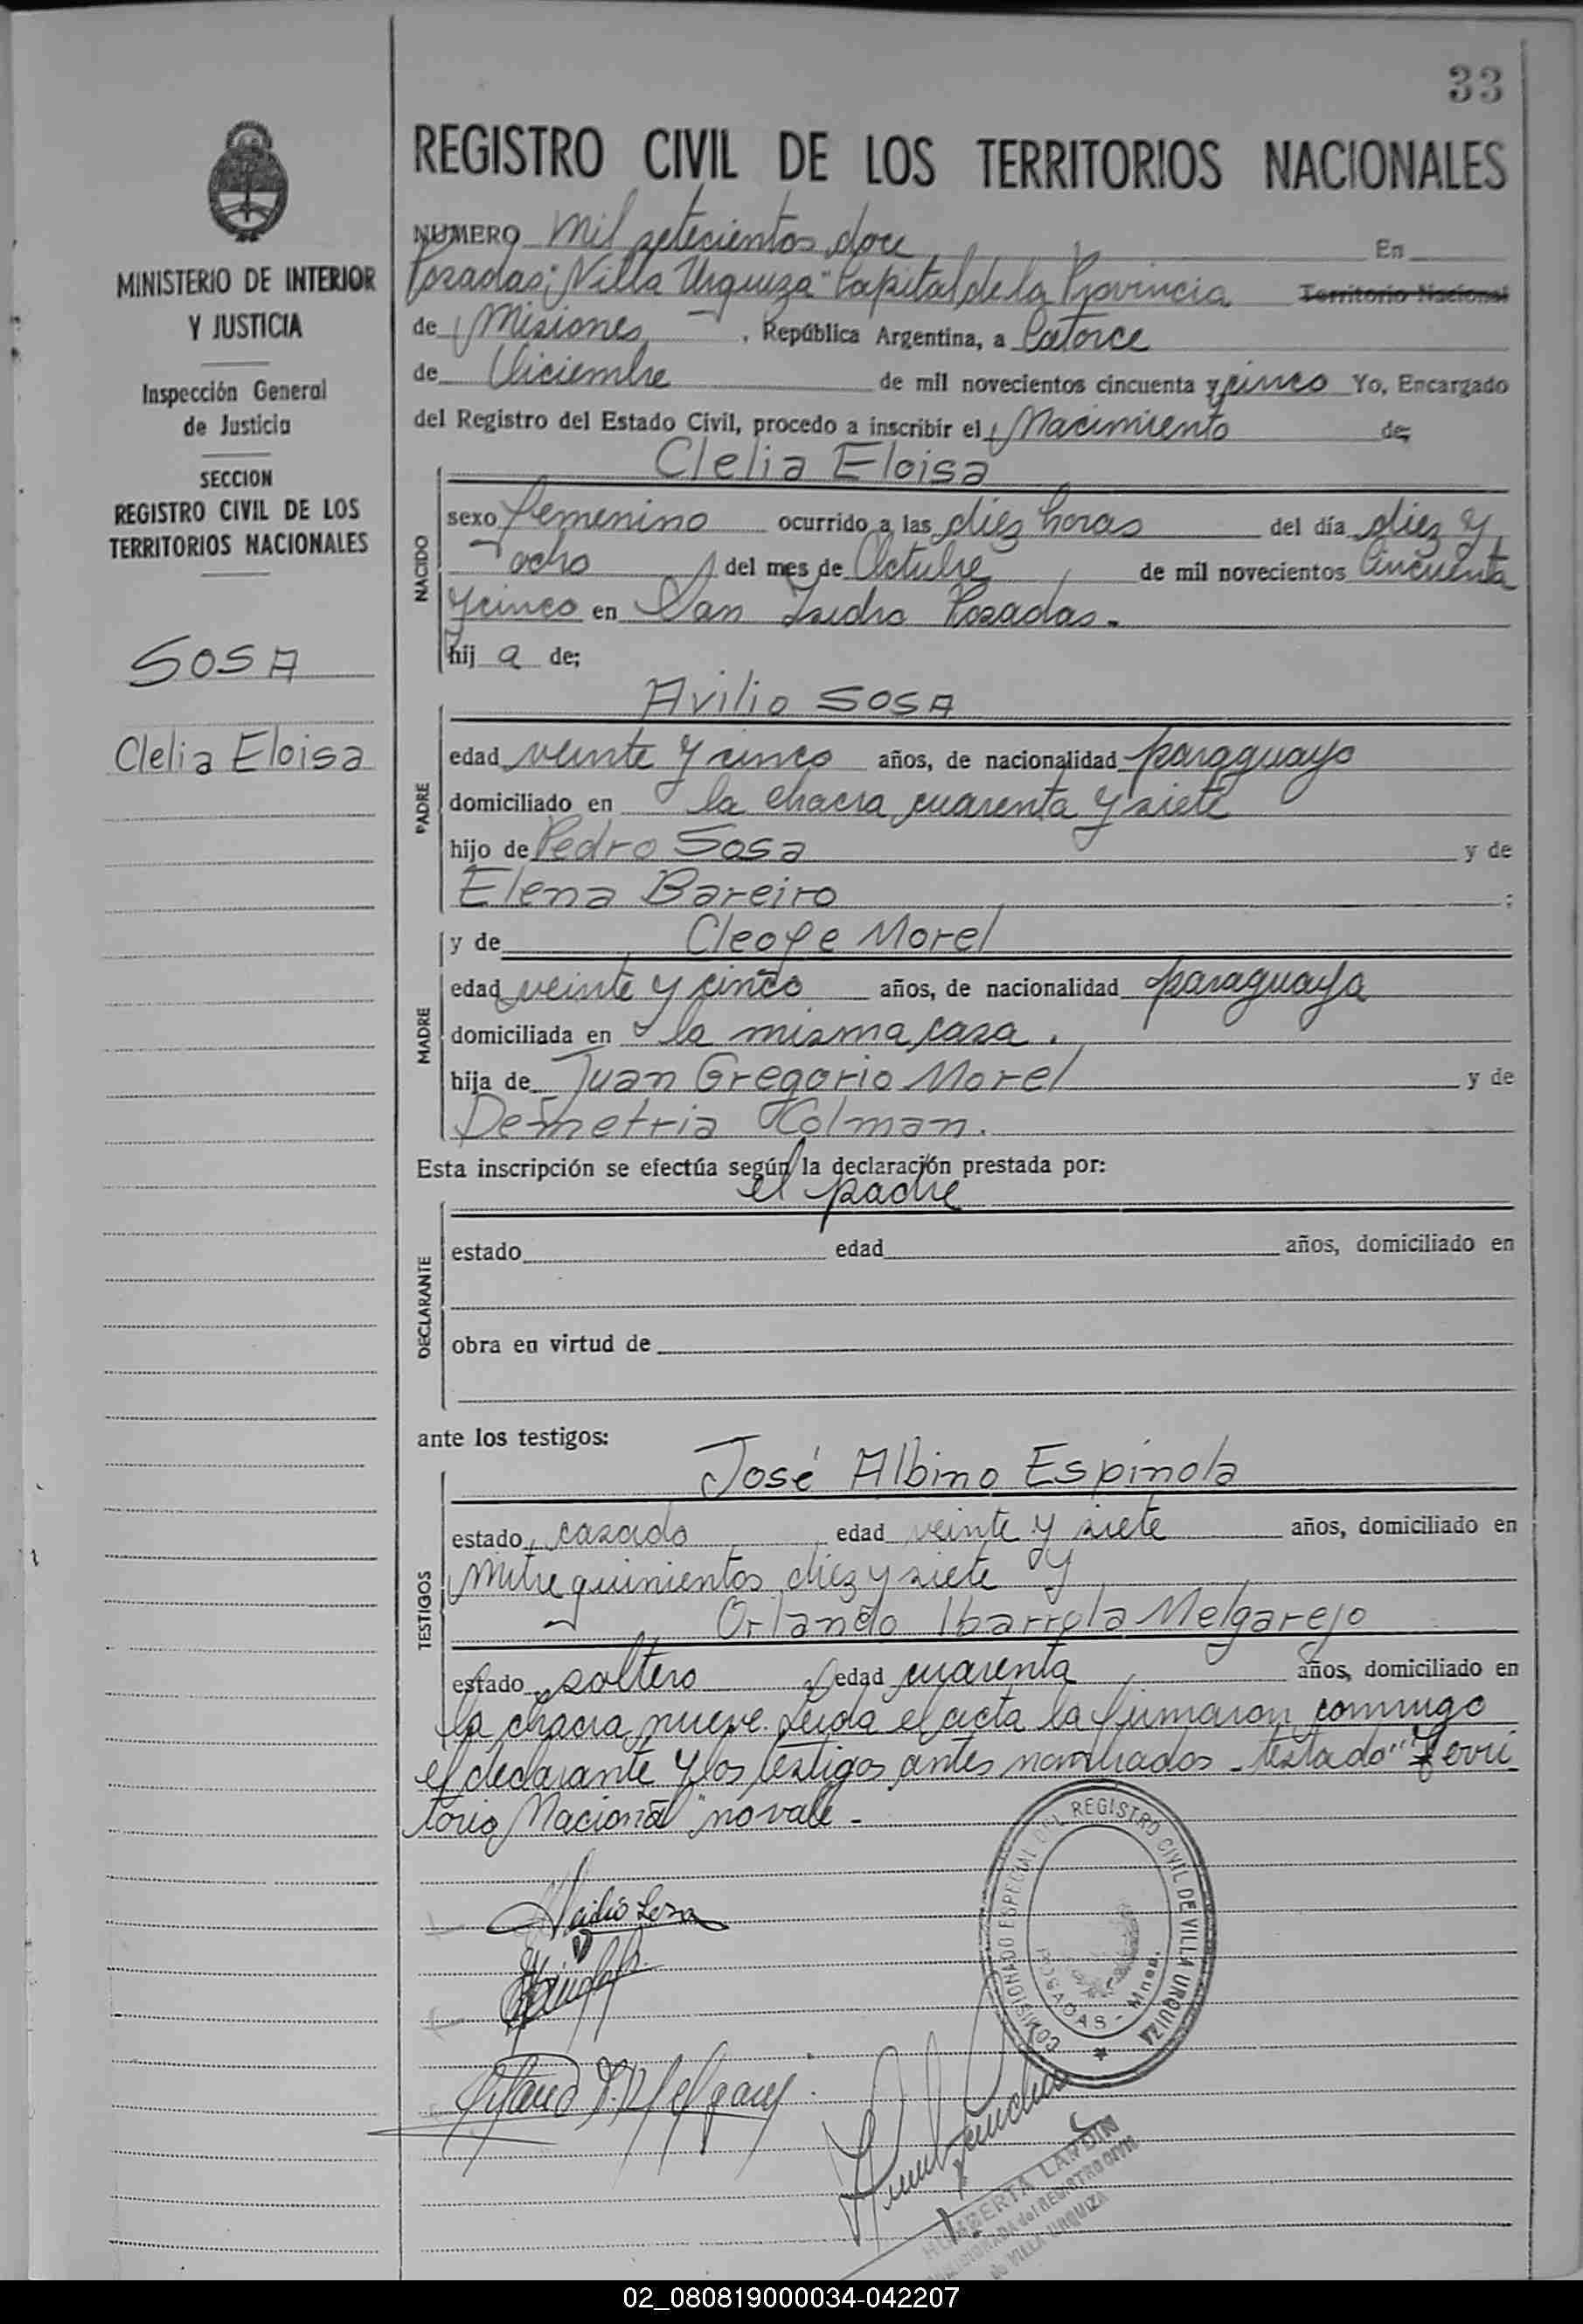 33
REGISTRO CIVIL DE LOS TERRITORIOS NACIONALES
MINISTERIO DE INTERIOR
Y JUSTICIA
Inspección General
de Justicia
SECCION
REGISTRO CIVIL DE LOS
TERRITORIOS NACIONALES
SOSA
Clelia Eloisa
NUMERO mil setecientos doce En
Posadas "Villa Urquiza" Capital de la Provincia Territorio Nacional
de Misiones, República Argentina, a Catorce
de Diciembre de mil novecientos cincuenta y cinco Yo, Encargado
del Registro del Estado Civil, procedo a inscribir el Nacimiento de;
NACIDO
Clelia Eloisa
sexo femenino ocurrido a las diez horas del día diez y
ocho del mes de Octubre de mil novecientos cincuenta
y cinco en San Isidro Posadas.
hij a de;
PADRE
Avilio SOSA
edad veinte y cinco años, de nacionalidad paraguayo
domiciliado en la chacra cuarenta y siete
hijo de Pedro Sosa y de
Elena Bareiro ;
MADRE
y de Cleofe Morel
edad veinte y cinco años, de nacionalidad paraguaya
domiciliada en la misma casa.
hija de Juan Gregorio Morel y de
Demetria Colman.
Esta inscripción se efectúa según la declaración prestada por:
DECLARANTE
el padre
estado edad años, domiciliado en
obra en virtud de
ante los testigos:
TESTIGOS
José Albino Espinola
estado casado edad veinte y siete años, domiciliado en
Mitre quinientos diez y siete y
Orlando Ibarrola Melgarejo
estado soltero edad cuarenta años, domiciliado en
la chacra nueve. Leida el acta la firmaron conmigo
el declarante y los testigos antes nombrados - testado "Terri
torio Nacional" no vale -
COMISIONADO ESPECIAL DEL REGISTRO CIVIL DE VILLA URQUIZA
POSADAS - Mnes.
HUMBERTA LANDIN
del REGISTRO CIVIL
de VILLA URQUIZA
02_080819000034-042207